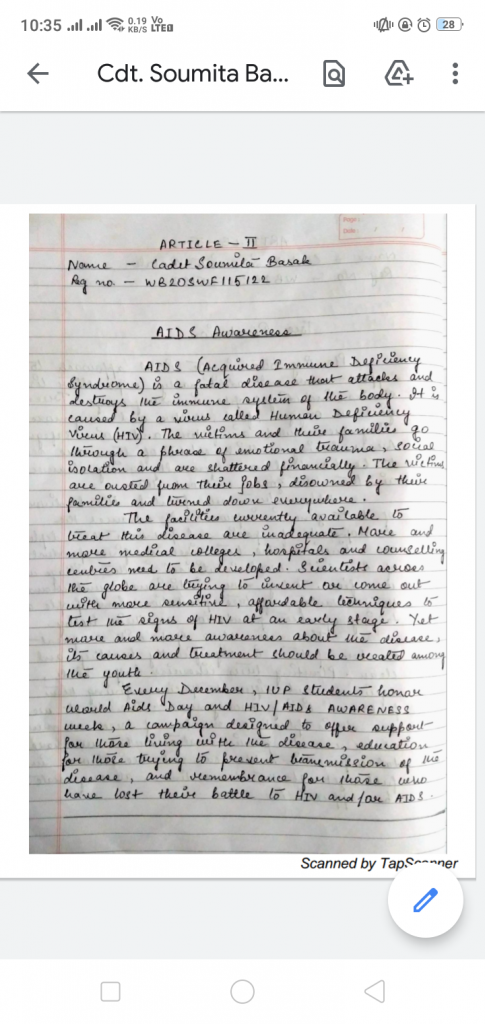 10:35 0.19 KB/S Vo LTE 28
Cdt. Soumita Ba...
ARTICLE - II
Name - Cadet Soumita Basak
Reg no. - WB20SWF115122
AIDS Awareness
AIDS (Acquired Immune Deficiency
Syndrome) is a fatal disease that attacks and
destroys the immune system of the body. It is
caused by a virus called Human Deficiency
Virus (HIV). The victims and their families go
through a phrase of emotional trauma, social
isolation and are shattered financially. The victims
are ousted from their jobs, disowned by their
families and turned down everywhere.
The facilities currently available to
treat this disease are inadequate. More and
more medical colleges, hospitals and counselling
centries need to be developed. Scientists across
the globe are trying to invent or come out
with more sensitive, affordable techniques to
test the signs of HIV at an early stage. Yet
more and more awareness about the disease,
its causes and treatment should be created among
the youth.
Every December, IUP students honor
world Aids Day and HIV/AIDS AWARENESS
week, a campaign designed to offer support
for those living with the disease, education
for those trying to prevent transmission of the
disease, and remembrance for those who
have lost their battle to HIV and/or AIDS.
Scanned by TapScanner